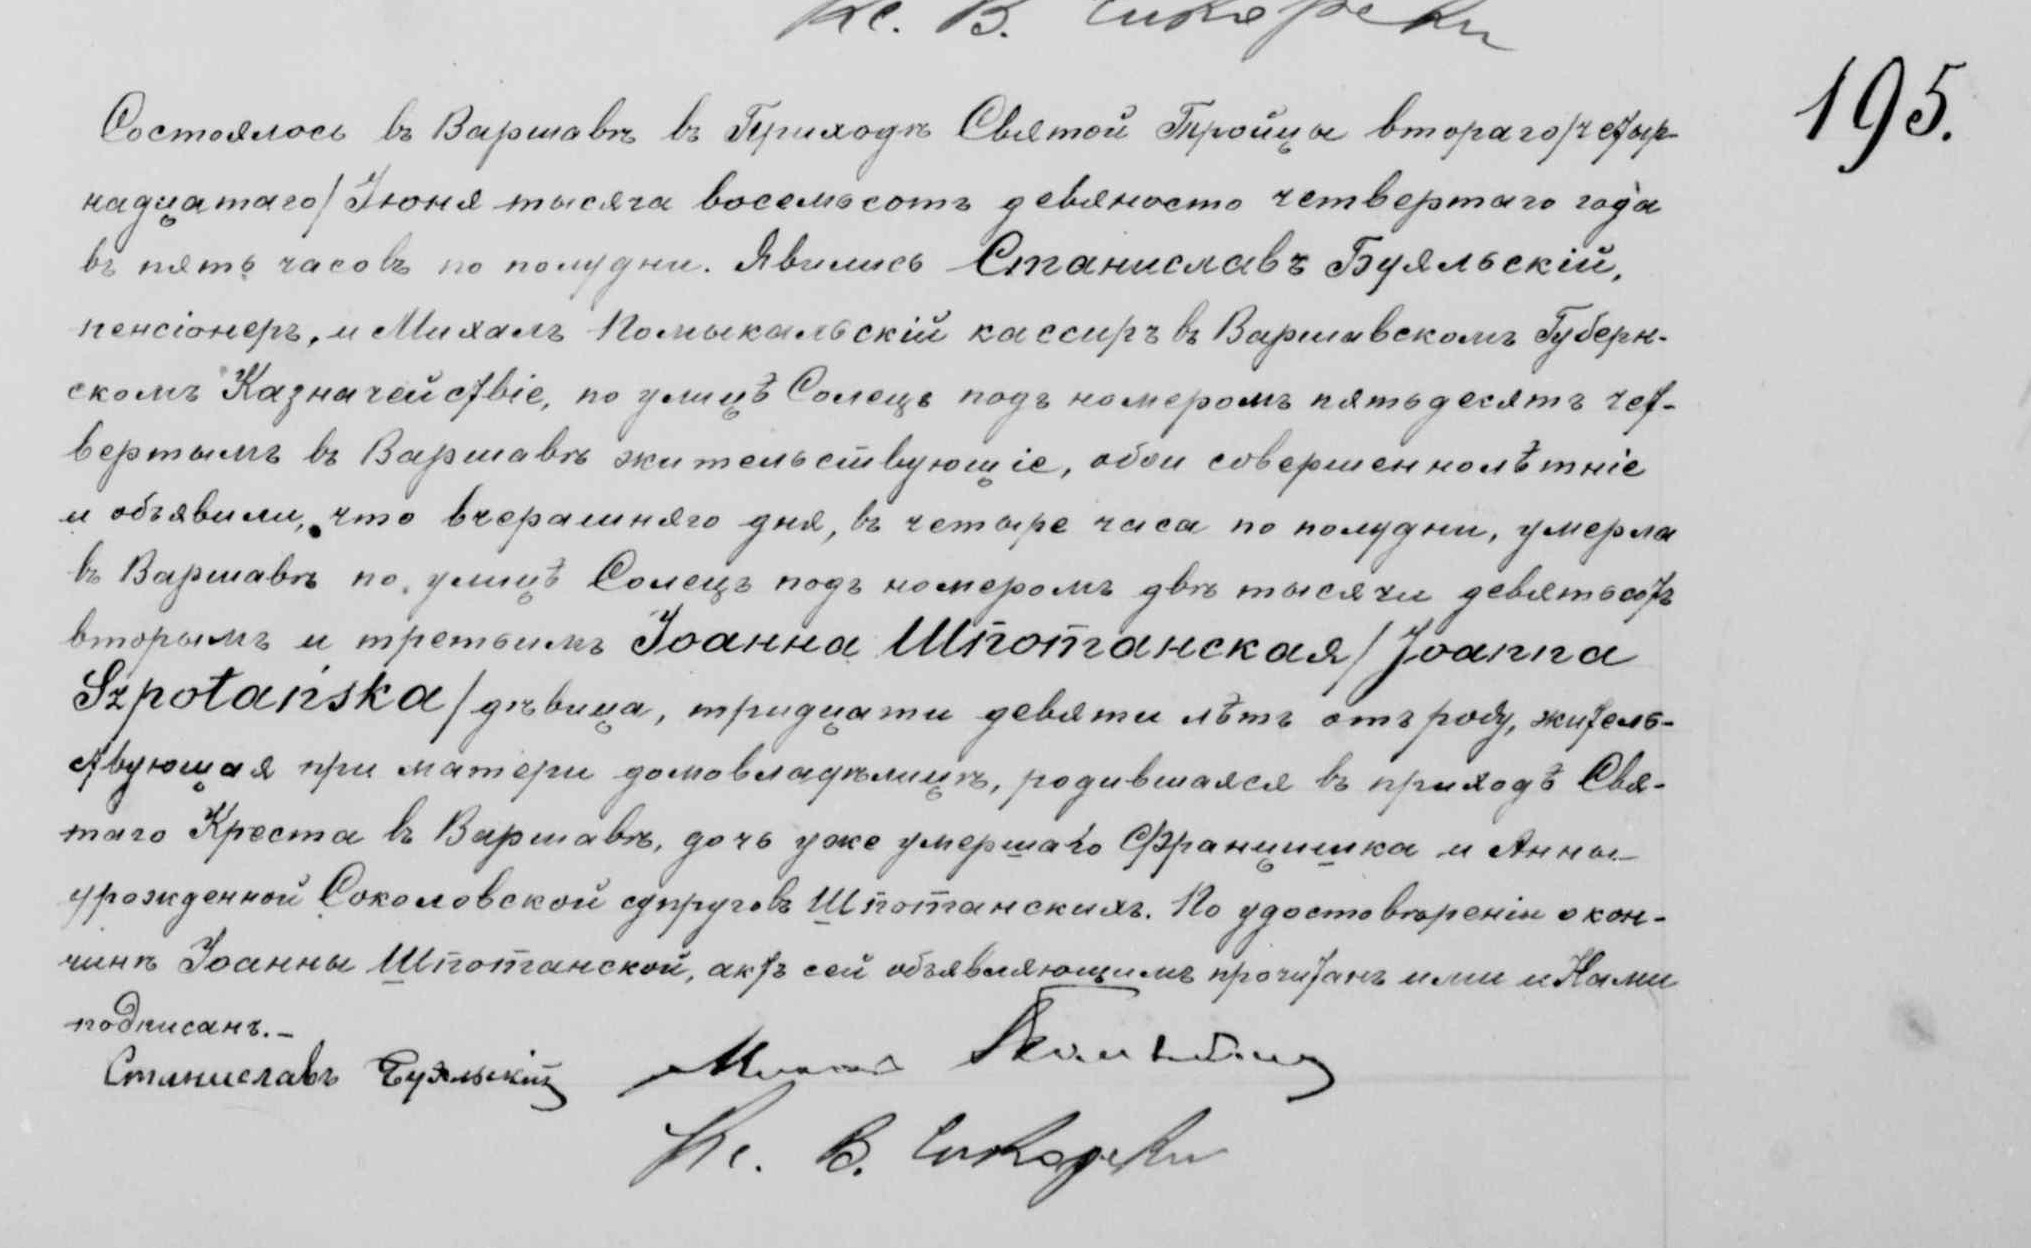 Кс. В.
195.
Состоялось въ Варшавѣ въ Приходѣ Святой Тройцы втораго/четыр-
надцатаго/ Іюня тысяча восемьсотъ девяносто четвертаго года
въ пять часовъ по полудни. Явились Станиславъ Буяльскій,
пенсіонеръ, и Михалъ Помыкальскій кассиръ въ Варшавскомъ Губерн-
скомъ Казначействіе, по улицѣ Солецъ подъ номеромъ пятьдесятъ чет-
вертымъ въ Варшавѣ жительствующіе, обои совершеннолѣтніе
и объявили, что вчерашняго дня, въ четыре часа по полудни, умерла
въ Варшавѣ по улицѣ Солецъ подъ номеромъ двѣ тысячи девятьсотъ
вторымъ и третьимъ Іоанна Шпотанская/Joanna
Szpotańska/дѣвица, тридцати девяти лѣтъ отъ роду, житель-
ствующая при матери домовладѣлицѣ, родившаяся въ приходѣ Свя-
таго Креста въ Варшавѣ, дочь уже умершаго Францишка и Анны
урожденной Соколовской супруговъ Шпотанскихъ. По удостовѣреніи о кон-
чинѣ Іоанны Шпотанской, актъ сей объявляющимъ прочитанъ ими и Нами
подписанъ.-
Станиславъ Буяльскій
Кс. В.